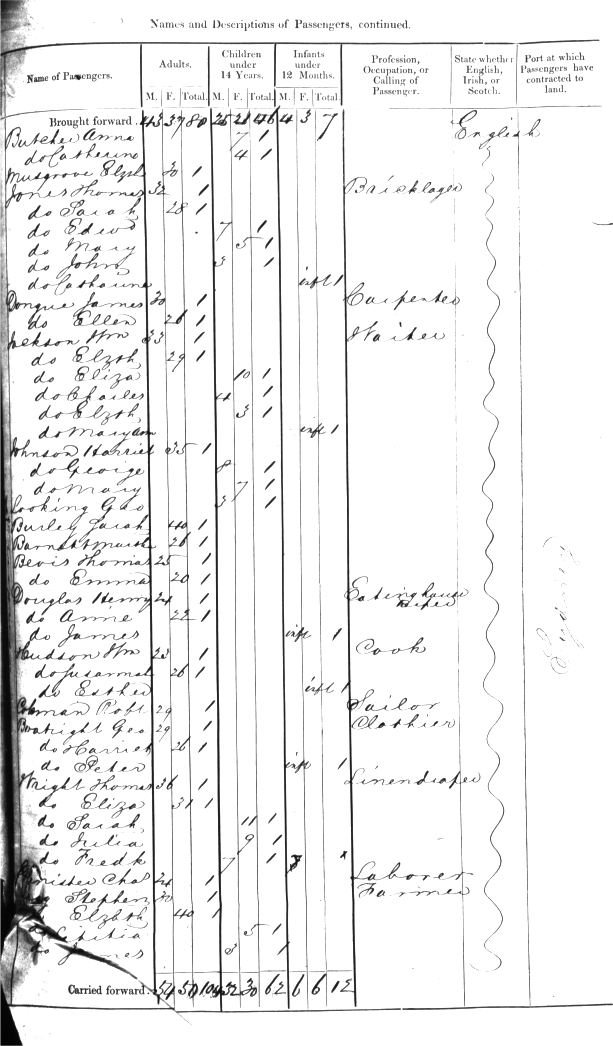 Names and Descriptions of Passengers, continued.
Name of Passengers. Adults. Children under 14 Years. Infants under 12 Months. Profession, Occupation, or Calling of Passenger. State whether English, Irish, or Scotch. Port at which Passengers have contracted to land.
M. F. Total. M. F. Total. M. F. Total.
Brought forward. 43 37 80 25 21 46 4 3 7 English
Butcher Anna 7 1
do Catherine 4 1
Musgrove Elzth 30 1
Jones Thomas 32 1 Bricklayer
do Sarah 28 1
do Edwd 7 1
do Mary 5 1
do John 3 1
do Catharine inft 1
Dongue James 30 1 Carpenter
do Ellen 26 1
Jackson Wm 33 1 Waiter
do Elzth 29 1
do Eliza 10 1
do Charles 4 1
do Elzth 3 1
do Mary Ann inft 1
Johnson Harriet 35 1
do George 8 1
do Mary 7 1
Cooking Geo 3 1
Burley Sarah 40 1
Barnett Martha 26 1
Bevis Thomas 25 1
do Emma 20 1
Douglas Henry 24 1 Eatinghouse Keeper
do Annie 22 1
do James inft 1
Hudson Wm 23 1 Cook
do Susannah 26 1
do Esther inft 1
Sydney
Coleman Robt 29 1 Sailor
Boatright Geo 29 1 Clothier
do Harriet 26 1
do Peter inft 1
Wright Thomas 36 1 Linendraper
do Eliza 31 1
do Sarah 11 1
do Julia 9 1
do Fredk 7 1
Chas 24 1 Laborer
Stephen 30 1 Farmer
Elzbth 40 1
do Letitia 5 1
do James 3 1
Carried forward. 54 50 104 32 30 62 6 6 12